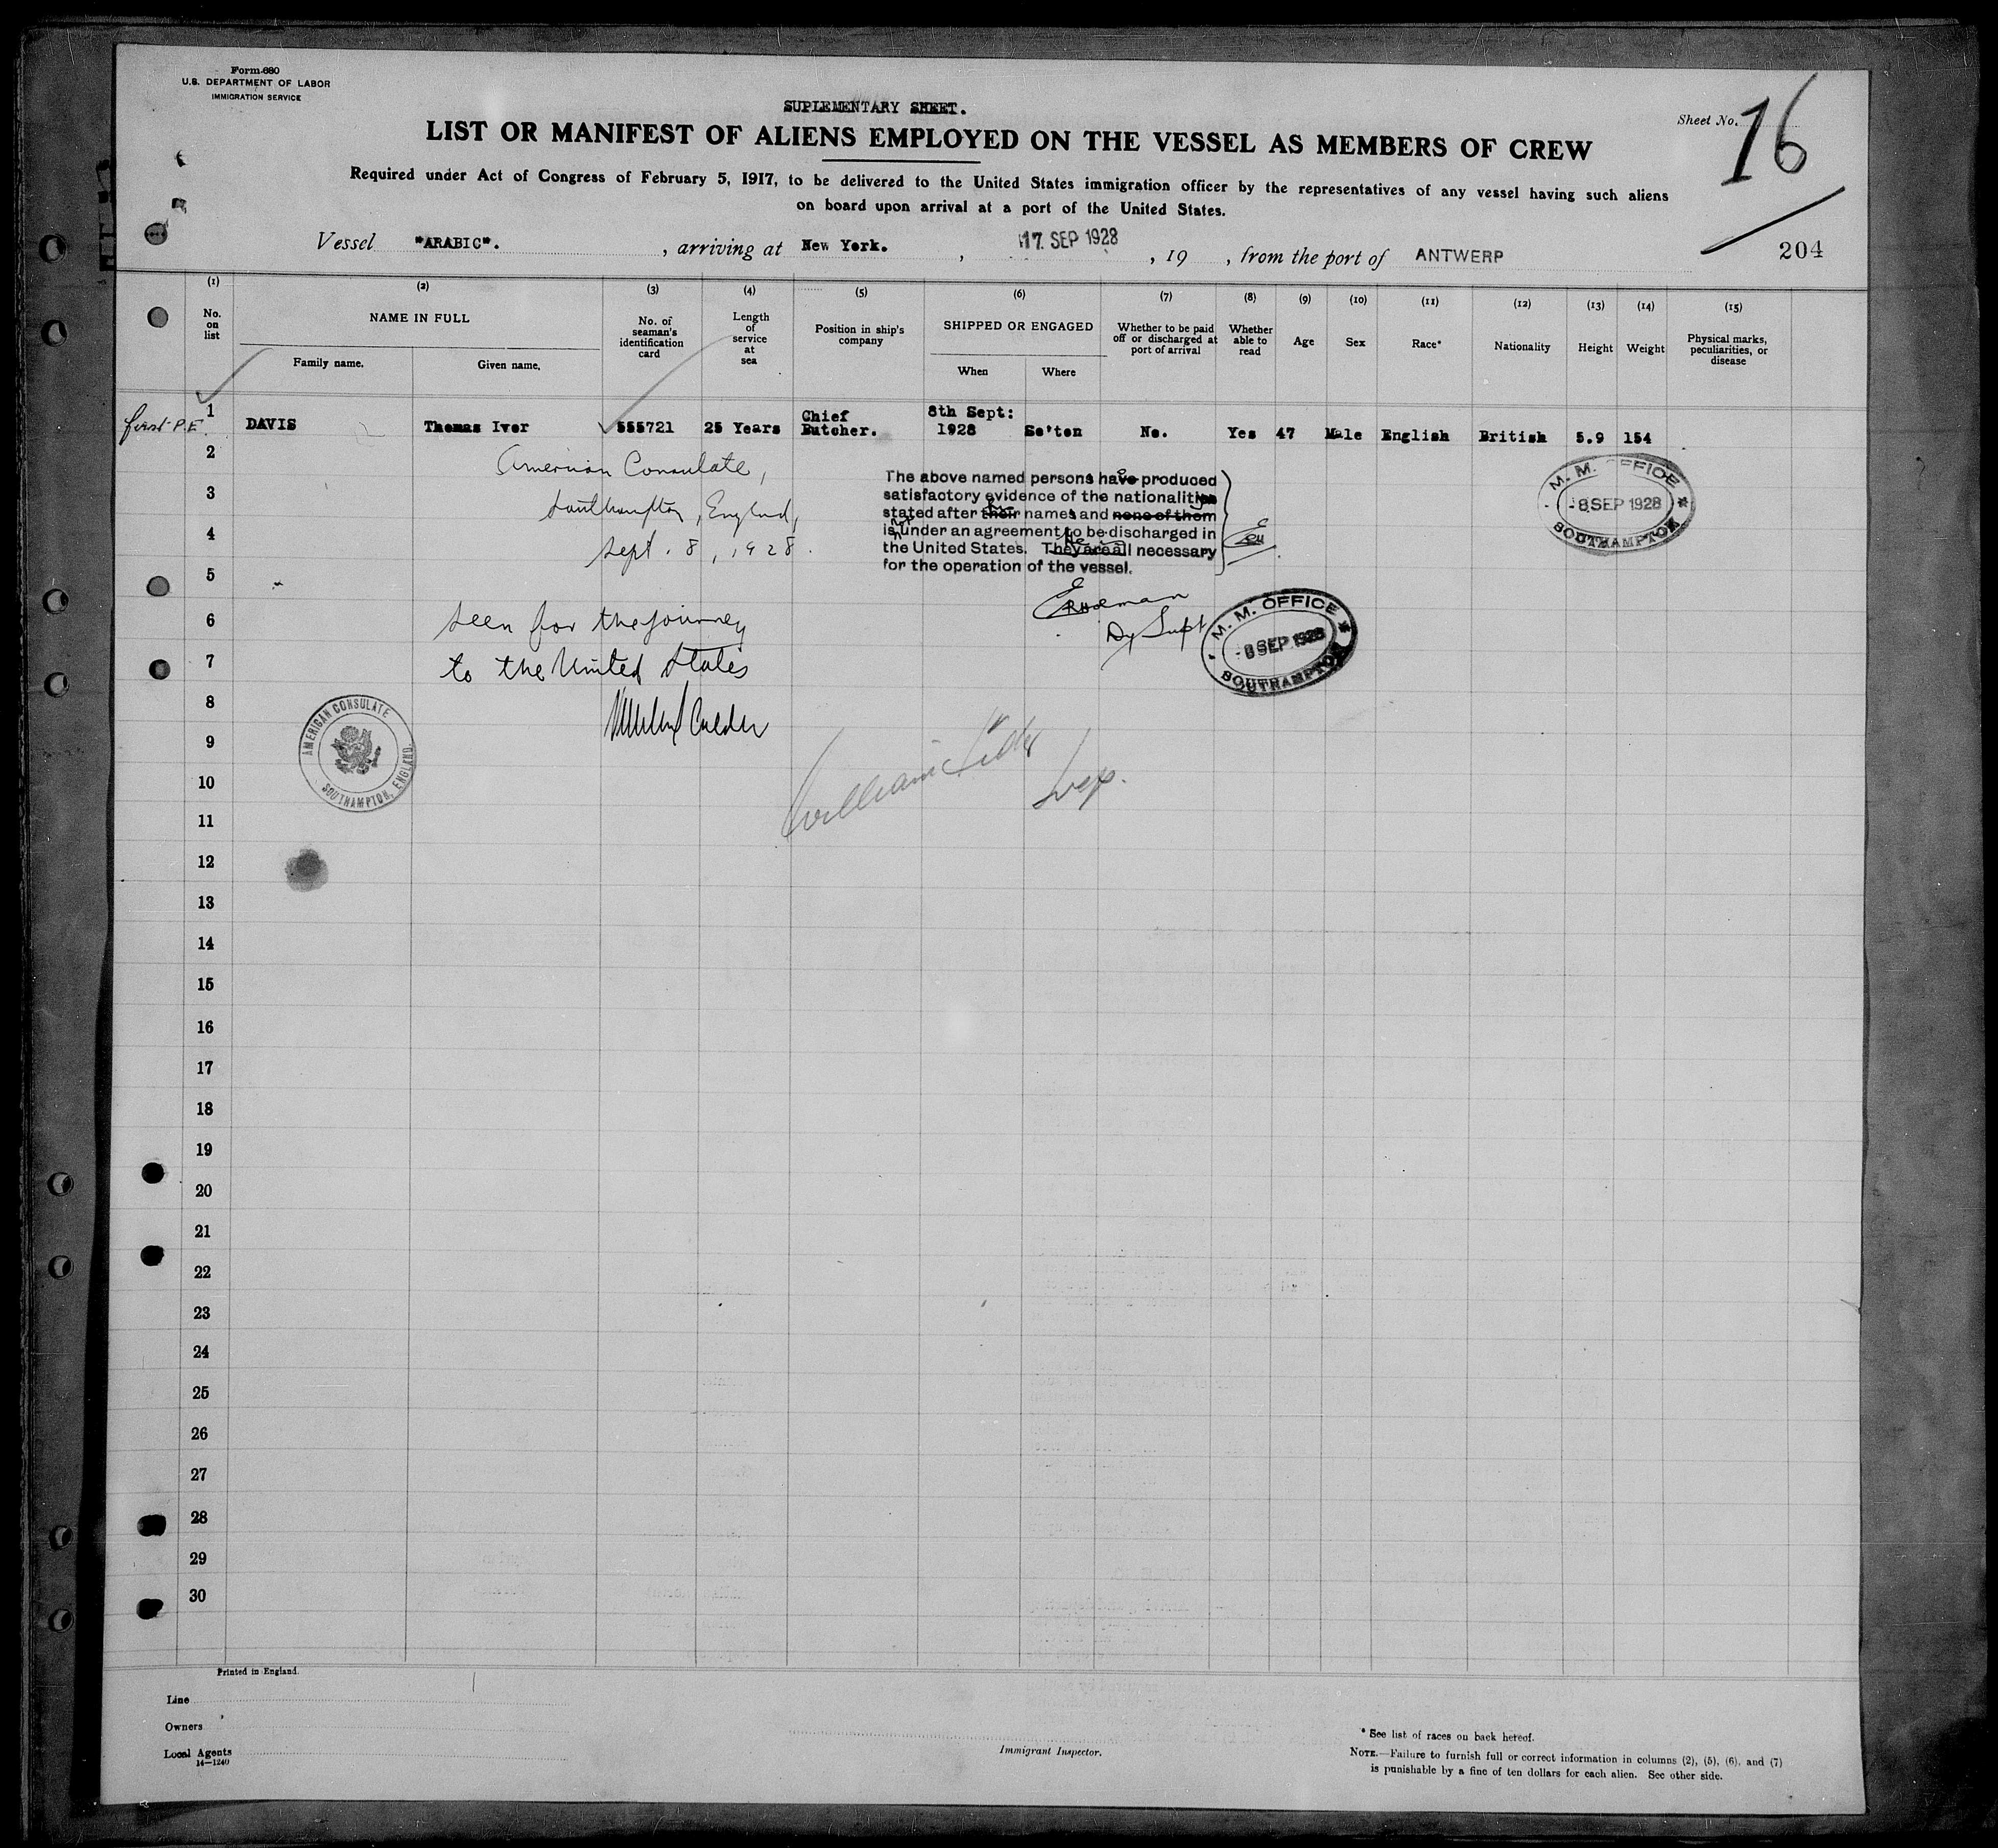 Form 680
U.S. DEPARTMENT OF LABOR
IMMIGRATION SERVICE
SUPLEMENTARY SHEET.
Sheet No. 16
LIST OR MANIFEST OF ALIENS EMPLOYED ON THE VESSEL AS MEMBERS OF CREW
Required under Act of Congress of February 5, 1917, to be delivered to the United States immigration officer by the representatives of any vessel having such aliens
on board upon arrival at a port of the United States.
Vessel "ARABIC". , arriving at New York. , 17 SEP 1928 , 19 , from the port of ANTWERP
204
(1) (2) (3) (4) (5) (6) (7) (8) (9) (10) (11) (12) (13) (14) (15)
No. on list
NAME IN FULL
Family name.
Given name.
No. of seaman's identification card
Length of service at sea
Position in ship's company
SHIPPED OR ENGAGED
When
Where
Whether to be paid off or discharged at port of arrival
Whether able to read
Age
Sex
Race*
Nationality
Height
Weight
Physical marks, peculiarities, or disease
first P.E. 1 DAVIS Thomas Iver 555721 25 Years Chief Butcher. 8th Sept: 1928 So'ton No. Yes 47 Male English British 5.9 154
2
American Consulate,
3
Southampton, England,
4
Sept. 8, 1928.
The above named persons have produced
satisfactory evidence of the nationalities
stated after their names and none of them
is not under an agreement to be discharged in
the United States. They are all necessary
for the operation of the vessel.
M. M. OFFICE
-8 SEP 1928
SOUTHAMPTON
5
6
seen for the journey
7
to the United States
Dy Supt
M. M. OFFICE
-8 SEP 1928
SOUTHAMPTON
8
Calder
AMERICAN CONSULATE
SOUTHAMPTON, ENGLAND.
9
William
Insp.
10
11
12
13
14
15
16
17
18
19
20
21
22
23
24
25
26
27
28
29
30
Printed in England.
Line
Owners
Local Agents
14—1240
Immigrant Inspector.
* See list of races on back hereof.
NOTE.—Failure to furnish full or correct information in columns (2), (5), (6), and (7)
is punishable by a fine of ten dollars for each alien. See other side.